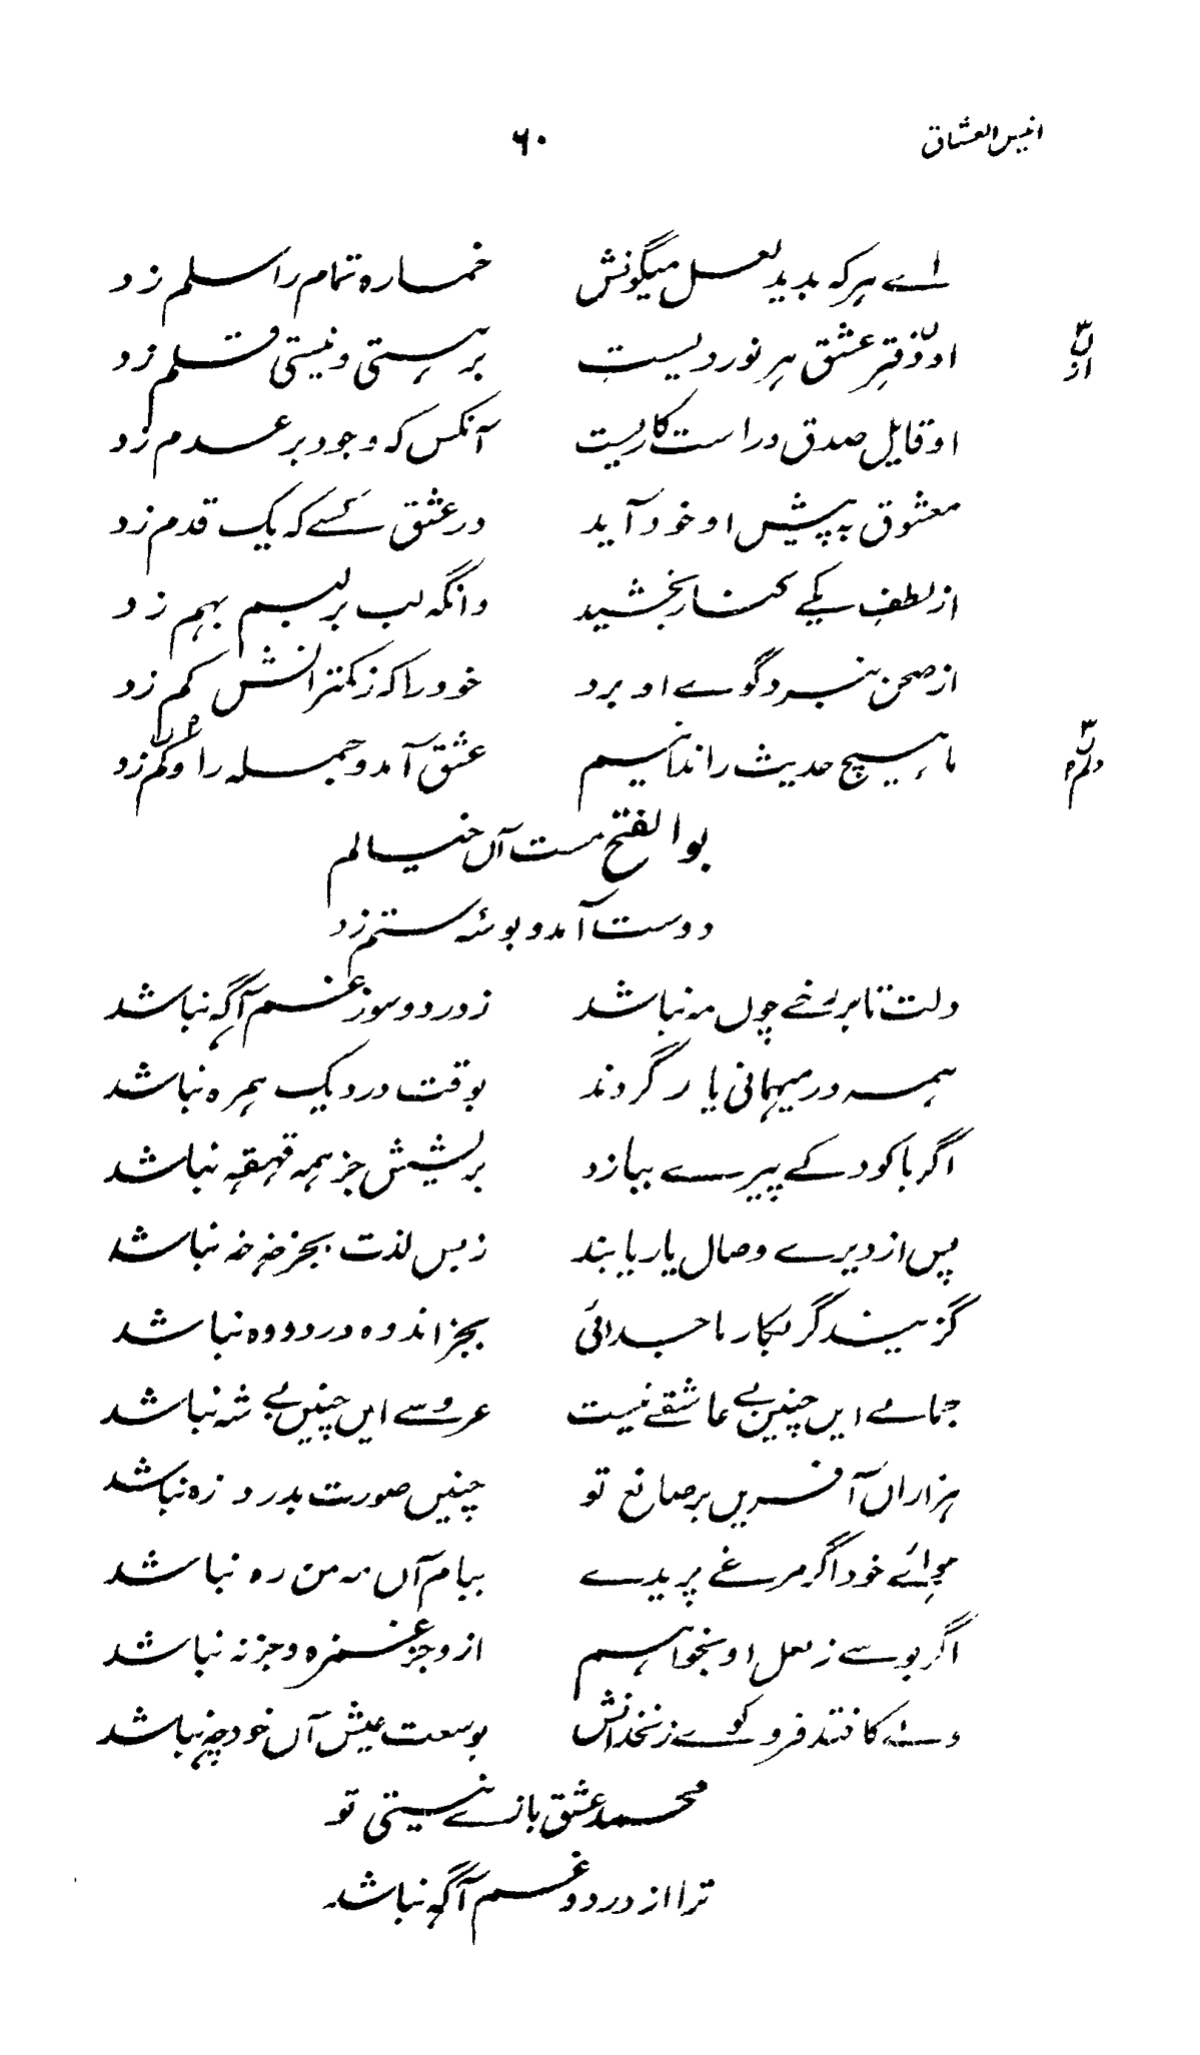 انیس العشاق ۶۰
اے ہر کہ بدید لعل میگونش خمارہ تمام را سلم زد
او دفتر عشق ہر نور دیست بر ہستی و نیستی قلم زد
ن از
او قایل صدق و راست کاریست آنکس کہ وجود بر عدم زد
معشوق بہ پیش او خود آید در عشق کسے کہ یک قدم زد
از لطف یکے کنار بخشید وانگہ لب بر لبم بہم زد
از صحن نبرد گوے او برد خود را کہ ز کمترانش کم زد
ما ہیچ حدیث را ندانیم عشق آمد و جملہ را و کم زد
ن
بوالفتح مست آں خیالم
دوست آمد و بوسۂ ستم زد
دلت تا بر رخے چوں مہ نباشد ز درد و سوز غم آگہ نباشد
ہمہ در میہمانی یار گردند بوقت درد یک ہمرہ نباشد
اگر با کودکے پیرے ببازد بریشش جز ہمہ قہقہہ نباشد
پس از دیرے وصال یار یابند ز بس لذت بجز خہ خہ نباشد
گزیند گر نگار ما جدائی بجز اندوہ و درد و وہ نباشد
جمالے ایں چنیں بے عاشقے نیست عروسے ایں چنیں بے شہ نباشد
ہزاراں آفریں بر صانع تو چنیں صورت بدر د زہ نباشد
ہوائے خود اگر مرغے پریدے ببام آں مہ من رہ نباشد
اگر بوسے ز لعل او بخواہم ازو جز غمزہ و جز نہ نباشد
دلے کافتد فرو کوے زنخدانش بوسعت عیش آں خود چہ نباشد
محمد عشق بازے نیستی تو
ترا از درد و غم آگہ نباشد